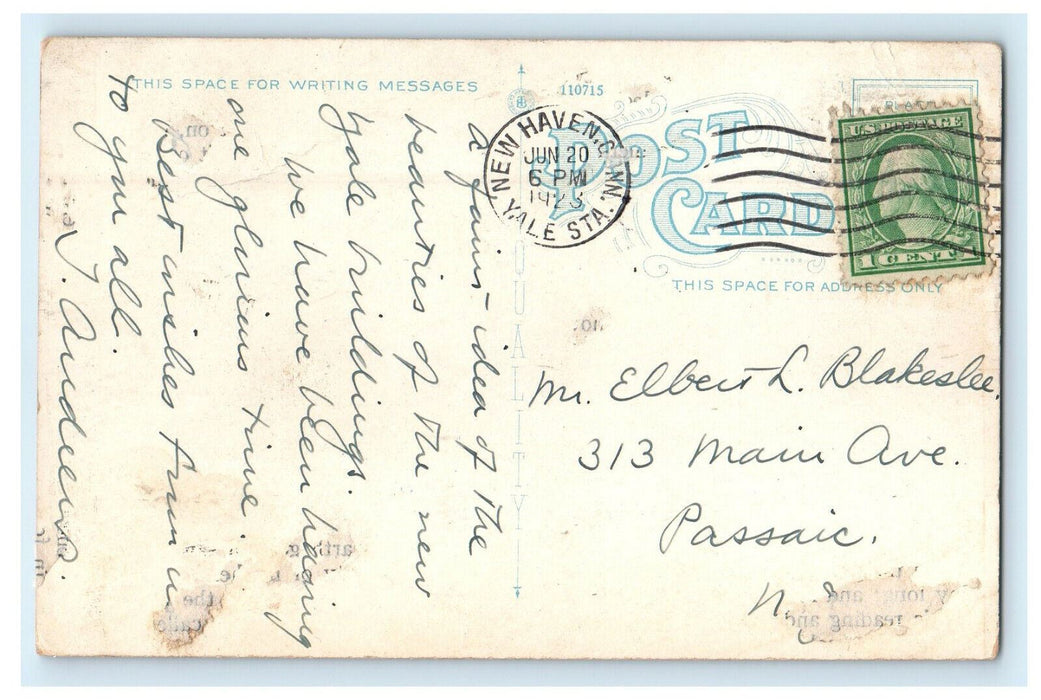 THIS SPACE FOR WRITING MESSAGES
110715
POST
CARD
NEW HAVEN, CONN.
JUN 20
6 PM
1923
YALE STA.
U.S. POSTAGE
1 CENT
THIS SPACE FOR ADDRESS ONLY
QUALITY
a faint idea of the
beauties of the new
Yale buildings.
We have been having
one glorious time.
Best wishes from us
to you all.
Mr. Elbert L. Blakeslee.
313 Main Ave.
Passaic.
N.J.